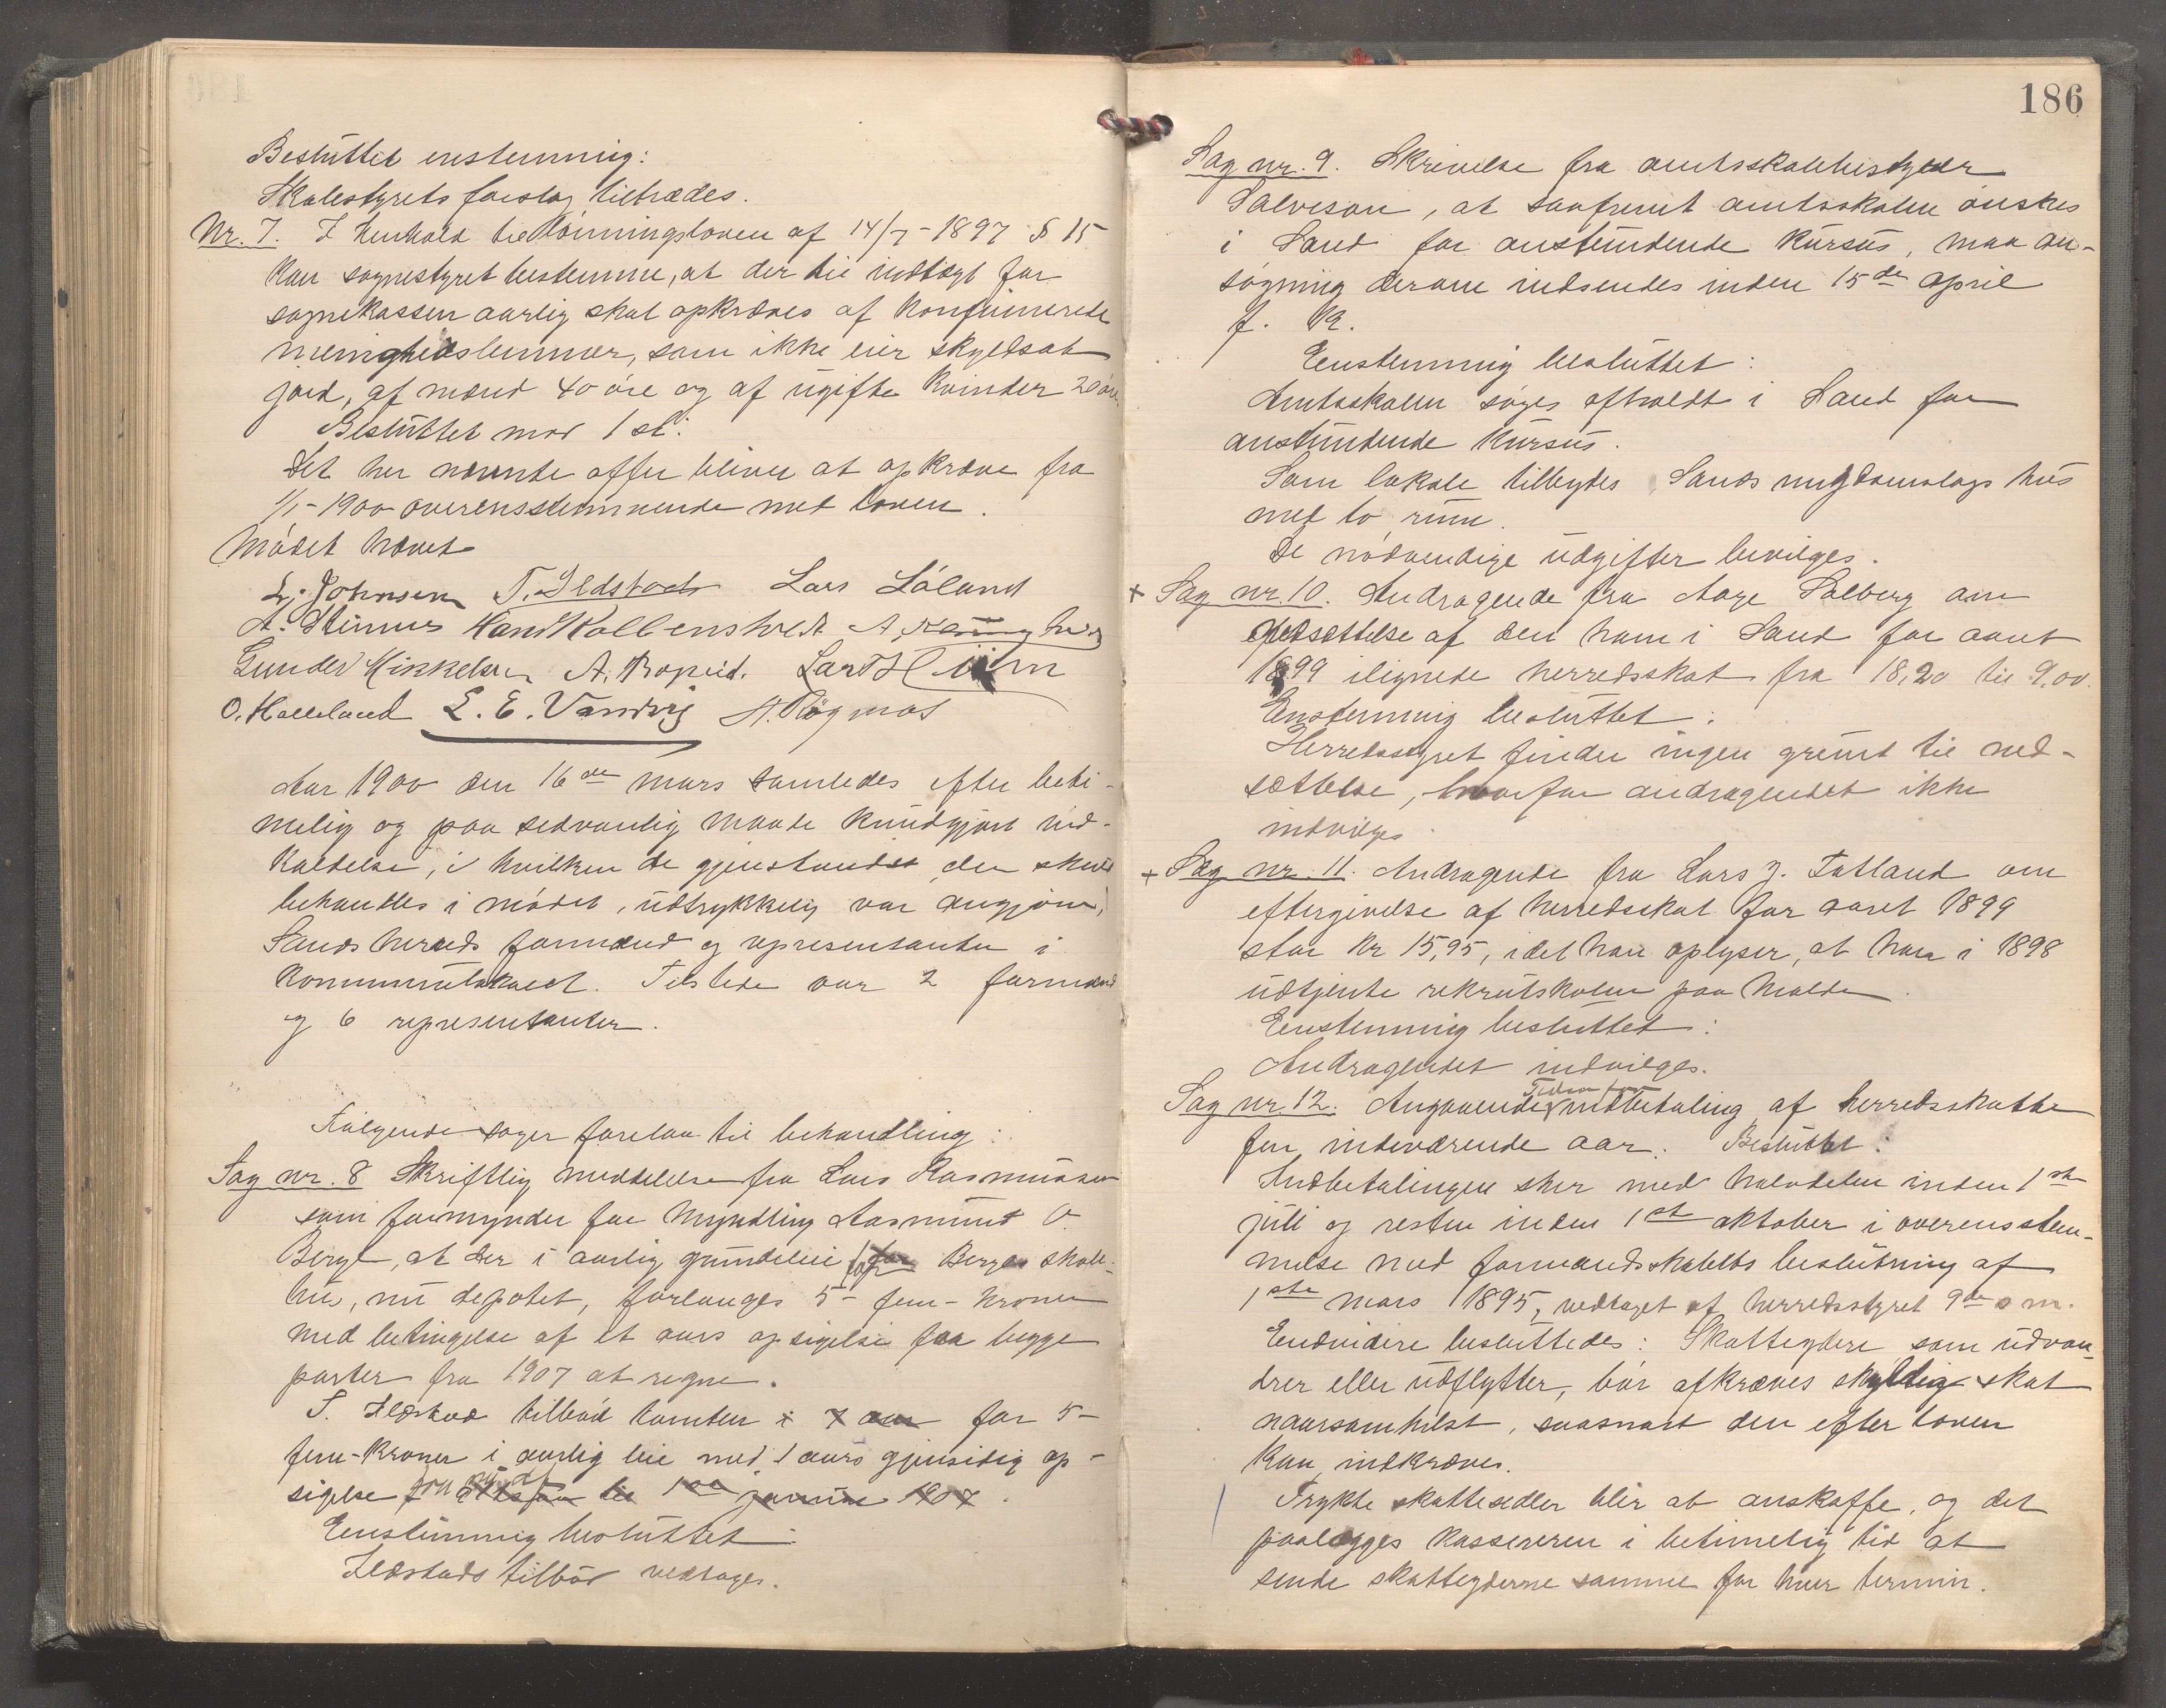 Besluttet enstemmig:
Skolestyrets forslag tiltrædes.
Nr. 7. I Henhold til Lønningsloven af 14/7-1897 § 15
kan sognestyret bestemme, at der til indtægt for
sognekassen aarlig skal opkræves af konfirmerede
menighedslemmer, som ikke eier skyldsat
jord, af mænd 40 øre og af ugifte kvinder 20 øre.
Besluttet mod 1 st:
Det her nævnte offer bliver at opkræve fra
1/1-1900 overensstemmende med loven.
Mødet hævet
L. Johnsen T. Ildstad Lars Løland
A. Hinnes
Gunder Mikkelsen
O. Halleland L. E. Vandvig
Aar 1900 den 16de mars samledes efter beti-
melig og paa sedvanlig maade kundgjort ind-
kaldelse, i hvilken de gjenstande, der skulde
behandles i mødet, udtrykkelig var angivne,
Sands herreds formænd og representanter i
Kommunelokalet. Tilstede var 2 formænd
og 6 representanter.
Følgende sager forelaa til behandling:
Sag nr. 8 Skriftlig meddelelse fra Lars Rasmussen
som formynder for myndling Aasmund O.
Berge, at der i aarlig grundleie for Berge skole-
hus, nu depotet, forlanges 5- fem- kroner
med betingelse af et aars opsigelse fra begge
parter fra 1907 at regne.
T. Ildstad tilbød tomten i 7 aar for 5-
fem-kroner i aarlig leie med 1 aars gjensidig op-
sigelse 1ste januar 1907.
Enstemmig besluttet:
Ildstads tilbud vedtages.
186
Sag nr. 9. Skrivelse fra amtsskolebestyrer
Salveson, at saafremt amtsskolen ønskes
i Sand for anstundende kursus, maa an-
søgning derom indsendes inden 15de april
f. k.
Eenstemmig besluttet:
Amtsskolen søges afholdt i Sand for
anstundende kursus.
Som lokale tilbydes Sands ungdomslags hus
med to rum.
De nødvendige udgifter bevilges.
+ Sag nr. 10. Andragende fra Aage Salberg om
nedsættelse af den ham i Sand for aaret
1899 ilignede herredsskat fra 18,20 til 9,00.
Enstemmig besluttet:
Herredsstyret finder ingen grund til ned-
sættelse, hvorfor andragendet ikke
indvilges.
+ Sag nr. 11. Andragende fra Lars J. Tatland om
eftergivelse af herredsskat for aaret 1899
stor kr 15,95, idet han oplyser, at han i 1898
udtjente rekrutskolen paa Malde.
Eenstemmig besluttet:
Andragendet indvilges.
Tiden for
Sag nr. 12. Angaaende indbetaling af herredsskatten
for indeværende aar. Besluttet:
Indbetalingen sker med halvdelen inden 1ste
juli og resten inden 1ste oktober i overensstem-
melse med formandskabets beslutning af
1ste mars 1895, vedtaget af herredsstyret 9de s. m.
Endvidere besluttedes: Skatteydere som udvan-
drer eller udflytter, bør afkræves skyldig skat
naarsomhelst, saasnart den efter loven
kan indkræves.
Trykte skattesedler blir at anskaffe, og det
paalægges kassereren i betimelig tid at
sende skatteyderne samme før hver termin.